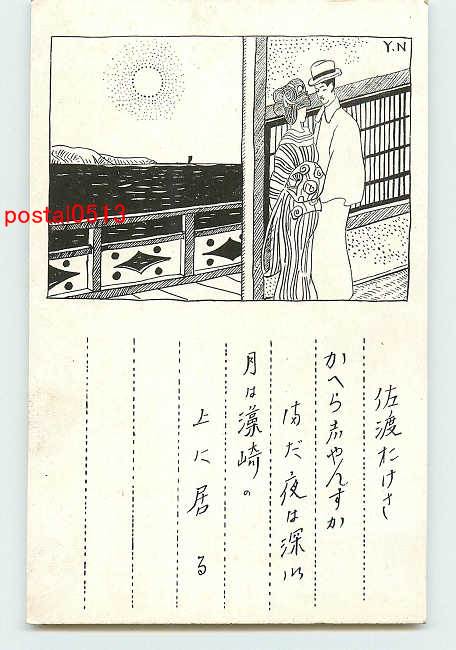 Y.N
postal0513
佐渡おけさ
かへらしやんすか
まだ夜は深い
月は藻崎の
上に居る